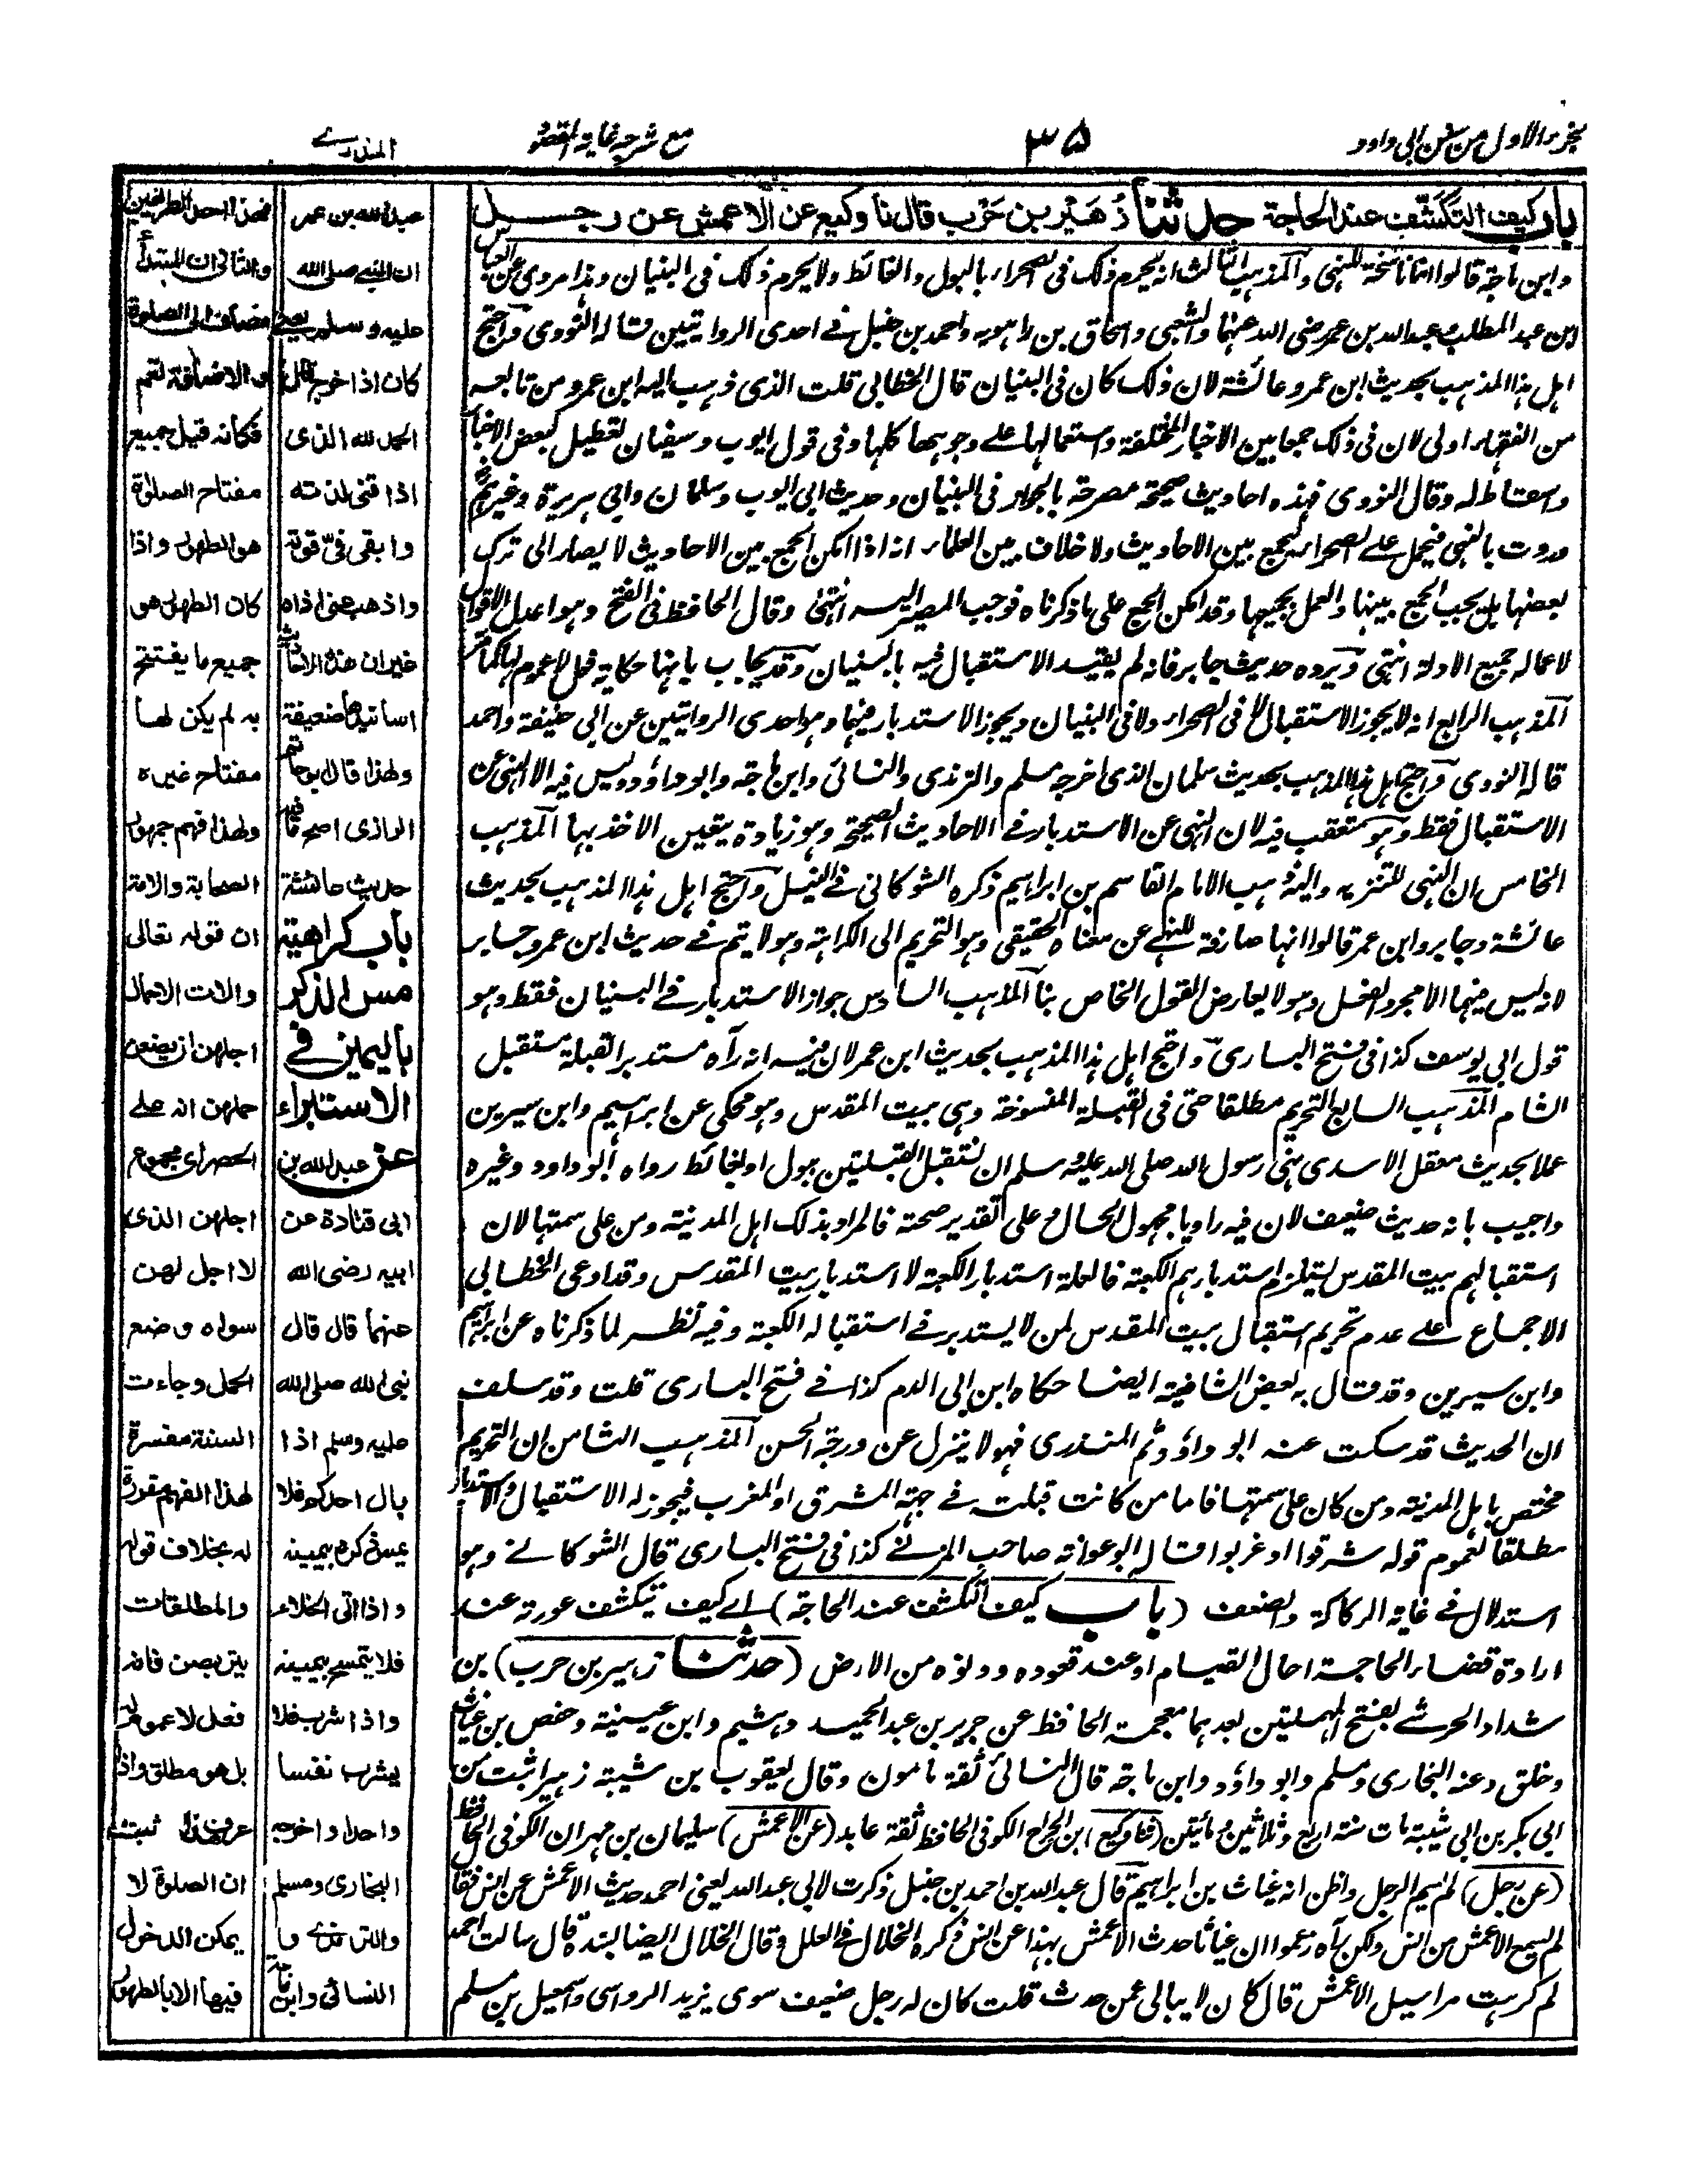 الجزء الاول من سنن ابی داود
۳۵
مع شرحہ غایۃ المقصود
المنذری
باب كيف التَّكَشُّف عند الحاجة حدثنا زُهَيْر بن حَرْب قال نا وكيع عن الاعمش عن رجل
وابن ماجة قالوا انها ناسخة للنهي والمذهب الثالث انه يحرم ذلك في الصحراء بالبول والغائط ولا يحرم ذلك في البنيان وهذا مروي عن العباس
ابن عبد المطلب وعبد الله بن عمر رضي الله عنهما والشعبي واسحاق بن راهويه واحمد بن حنبل في احدى الروايتين قاله النووي واحتج
اهل هذا المذهب بحديث ابن عمر وعائشة لان ذلك كان في البنيان قال الخطابي قلت الذي ذهب اليه ابن عمر ومن تابعه
من الفقهاء اولى لان في ذلك جمعا بين الاخبار المختلفة واستعمالها على وجوهها كلها وفي قول ايوب وسفيان تعطيل لبعض الاخبار
واسقاط له وقال النووي فهذه احاديث صحيحة مصرحة بالجواز في البنيان وحديث ابي ايوب وسلمان وابي هريرة وغيرهم
وردت بالنهي فيحمل على الصحراء ليجمع بين الاحاديث ولا خلاف بين العلماء انه اذا امكن الجمع بين الاحاديث لا يصار الى ترك
بعضها بل يجب الجمع بينها والعمل بجميعها وقد امكن الجمع على ما ذكرناه فوجب المصير اليه انتهى وقال الحافظ في الفتح وهو اعدل الاقوال
لاعماله جميع الادلة انتهى ويرده حديث جابر فانه لم يقيد الاستقبال فيه بالبنيان وقد يجاب بانها حكاية فعل لا عموم لها كما مر
المذهب الرابع انه لا يجوز الاستقبال لا في الصحراء ولا في البنيان ويجوز الاستدبار فيهما وهو احدى الروايتين عن ابي حنيفة واحمد
قاله النووي واحتج اهل هذا المذهب بحديث سلمان الذي اخرجه مسلم والترمذي والنسائي وابن ماجة وابو داؤد وليس فيه الا النهي عن
الاستقبال فقط وهو متعقب فيه لان النهي عن الاستدبار في الاحاديث الصحيحة وهو زيادة يتعين الاخذ بها المذهب
الخامس ان النهي للتنزيه واليه ذهب الامام القاسم بن ابراهيم ذكره الشوكاني في النيل واحتج اهل هذا المذهب بحديث
عائشة وجابر وابن عمر قالوا انها صارفة للنهي عن معناه الحقيقي وهو التحريم الى الكراهة وهو لا يتم في حديث ابن عمر وجابر
لانه ليس فيهما الا مجرد الفعل وهو لا يعارض القول الخاص بنا المذهب السادس جواز الاستدبار في البنيان فقط وهو
قول ابي يوسف كذا في فتح الباري واحتج اهل هذا المذهب بحديث ابن عمر لان فيه انه رآه مستدبر القبلة مستقبل
الشام المذهب السابع التحريم مطلقا حتى في القبلة المنسوخة وهي بيت المقدس وهو محكي عن ابراهيم وابن سيرين
عملا بحديث معقل الاسدي نهى رسول الله صلى الله عليه وسلم ان نستقبل القبلتين ببول او بغائط رواه ابو داود وغيره
واجيب بانه حديث ضعيف لان فيه راويا مجهول الحال وعلى تقدير صحته فالمراد بذلك اهل المدينة ومن على سمتها لان
استقبالهم بيت المقدس يستلزم استدبارهم الكعبة فالعلة استدبار الكعبة لا استدبار بيت المقدس وقد ادعى الخطابي
الاجماع على عدم تحريم استقبال بيت المقدس لمن لا يستدبر في استقباله الكعبة وفيه نظر لما ذكرناه عن ابراهيم
وابن سيرين وقد قال به بعض الشافعية ايضا حكاه ابن ابي الدم كذا في فتح الباري قلت وقد سلف
ان الحديث قد سكت عنه ابو داؤد ثم المنذري فهو لا ينزل عن درجة الحسن المذهب الثامن ان التحريم
مختص باهل المدينة ومن كان على سمتها فاما من كانت قبلته في جهة المشرق او المغرب فيجوز له الاستقبال والاستدبار
مطلقا لعموم قوله شرقوا او غربوا قاله ابو عوانة صاحب المزني كذا في فتح الباري قال الشوكاني وهو
استدلال في غاية الركاكة والضعف (باب كيف التكشف عند الحاجة) اي كيف يتكشف عورته عند
ارادة قضاء الحاجة احال القيام او عند قعوده ودنوه من الارض (حدثنا زهير بن حرب) بن
شداد الحرشي بفتح المهملتين بعدهما معجمة الحافظ عن جرير بن عبد الحميد وهشيم وابن عيينة وحفص بن غياث
وخلق وعنه البخاري ومسلم وابو داؤد وابن ماجة قال النسائي ثقة مامون وقال يعقوب بن شيبة زهير اثبت من
ابي بكر بن ابي شيبة مات سنة اربع وثلاثين ومائتين (نا وكيع) ابن الجراح الكوفي الحافظ ثقة عابد (عن الاعمش) سليمان بن مهران الكوفي الحافظ
(عن رجل) لم يسم الرجل واظن انه غياث بن ابراهيم قال عبد الله بن احمد بن حنبل ذكرت لابي عبد الله يعني احمد حديث الاعمش عن انس فقال
لم يسمع الاعمش من انس ولكن رآه زعموا ان غياثا حدث الاعمش بهذا عن انس ذكره الخلال في العلل وقال الخلال ايضا بسنده قال سالت احمد
لم كرهت مراسيل الاعمش قال كان لا يبالي عمن حدث قلت كان له رجل ضعيف سوى يزيد الرواسي واسمعيل بن مسلم
عبد الله بن عمر
ان النبي صلى الله
عليه وسلم يعني
كان اذا خرج قال
الحمد لله الذي
اذاقني لذته
وابقى فيّ قوته
واذهب عني اذاه
غير ان هذه الاحاديث
اسانيدها ضعيفة
ولهذا قال ابو حاتم
الرازي اصح ما فيه
حديث عائشة
باب كراهية
مس الذكر
باليمين في
الاستبراء
عن عبد الله بن
ابي قتادة عن
ابيه رضي الله
عنهما قال قال
نبي الله صلى الله
عليه وسلم اذا
بال احدكم فلا
يمس ذكره بيمينه
واذا اتى الخلاء
فلا يتمسح بيمينه
واذا شرب فلا
يشرب نفسا
واحدا واخرجه
البخاري ومسلم
والترمذي و
النسائي وابن ماجة
فمن احد الطرفين
والثاني ان المبتدأ
مضاف الى الصلوة
والاضافة تعم
فكانه قيل جميع
مفتاح الصلوة
هو الطهور واذا
كان الطهور هو
جميع ما يفتتح
به لم يكن لها
مفتاح غيره
ولهذا فهم جمهور
الصحابة والامة
ان قوله تعالى
واولات الاحمال
اجلهن ان يضعن
حملهن انه على
الحصر اي مجموع
اجلهن الذي
لا اجل لهن
سواه وضع
الحمل وجاءت
السنة مفسرة
لهذا الفهم مقررة
له بخلاف قوله
والمطلقات
يتربصن فانه
فعل لا عموم له
بل هو مطلق واذا
عرف هذا ثبت
ان الصلوة لا
يمكن الدخول
فيها الا بالطهور